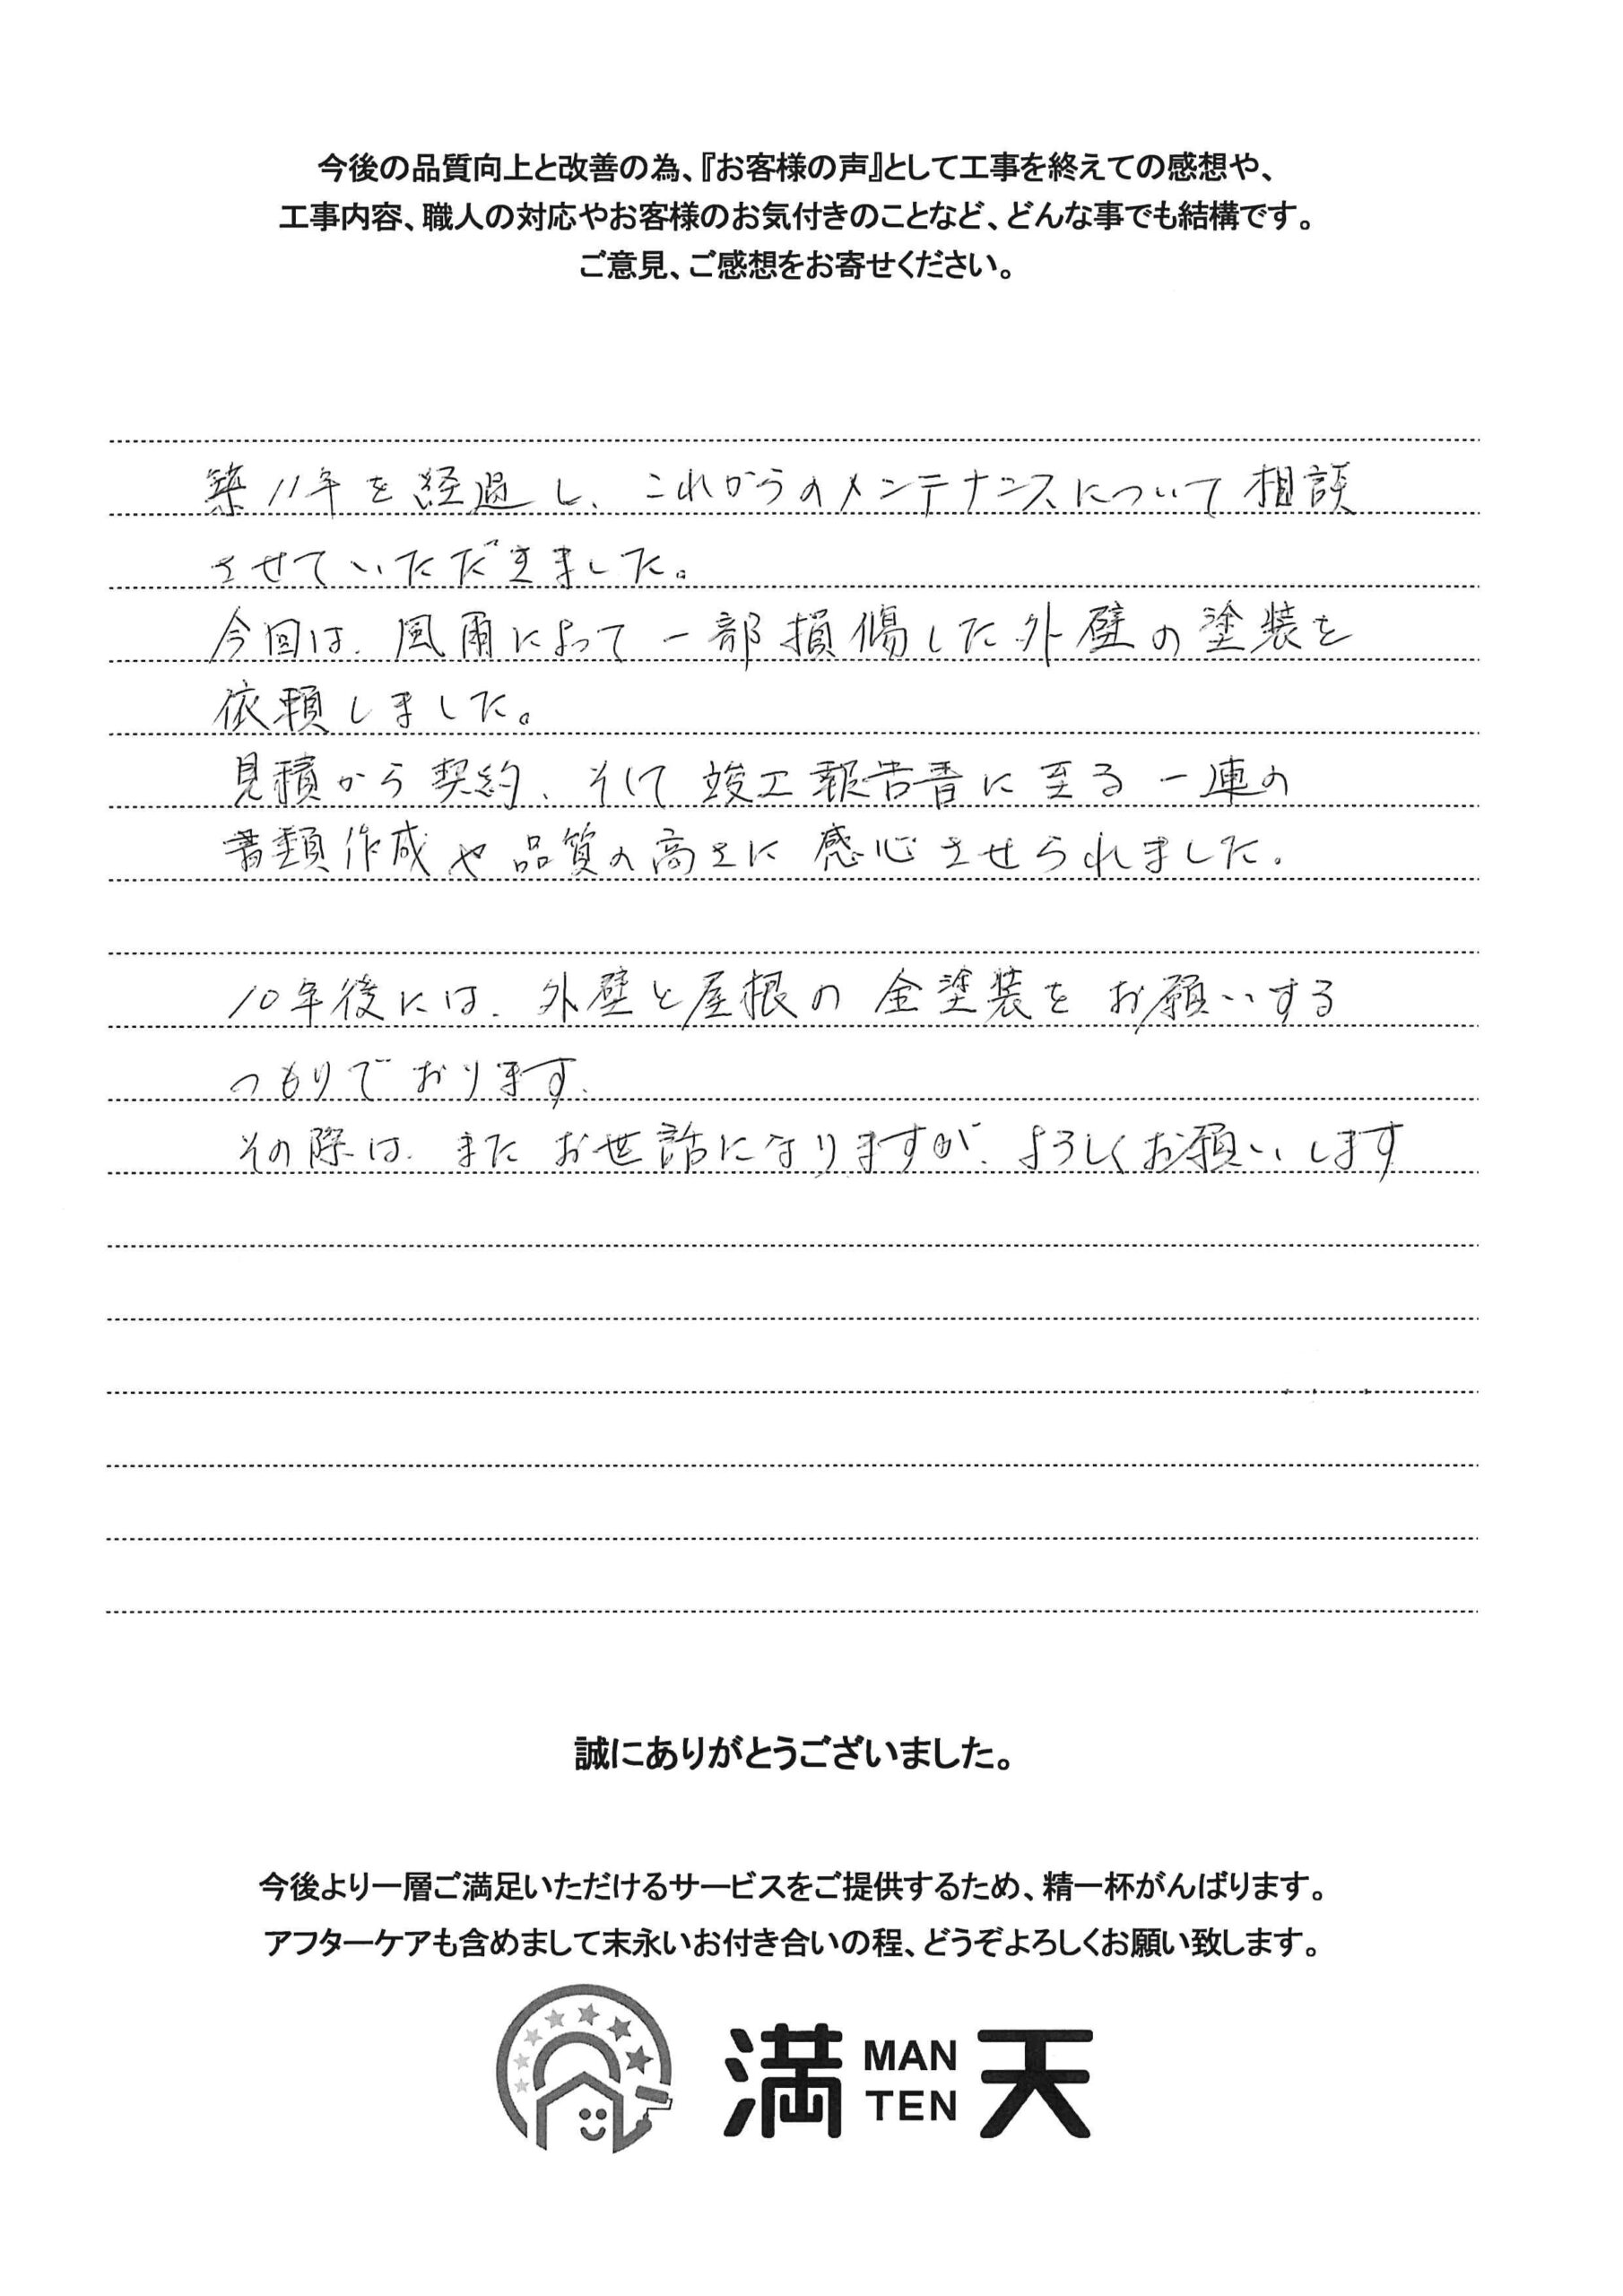 今後の品質向上と改善の為、『お客様の声』として工事を終えての感想や、
工事内容、職人の対応やお客様のお気付きのことなど、どんな事でも結構です。
ご意見、ご感想をお寄せください。
築11年を経過し、これからのメンテナンスについて相談
させていただきました。
今回は、風雨によって一部損傷した外壁の塗装を
依頼しました。
見積から契約、そして竣工報告書に至る一連の
書類作成や品質の高さに感心させられました。
10年後には、外壁と屋根の全塗装をお願いする
つもりでおります。
その際は、またお世話になりますが、よろしくお願いします
誠にありがとうございました。
今後より一層ご満足いただけるサービスをご提供するため、精一杯がんばります。
アフターケアも含めまして末永いお付き合いの程、どうぞよろしくお願い致します。
満 MAN TEN 天